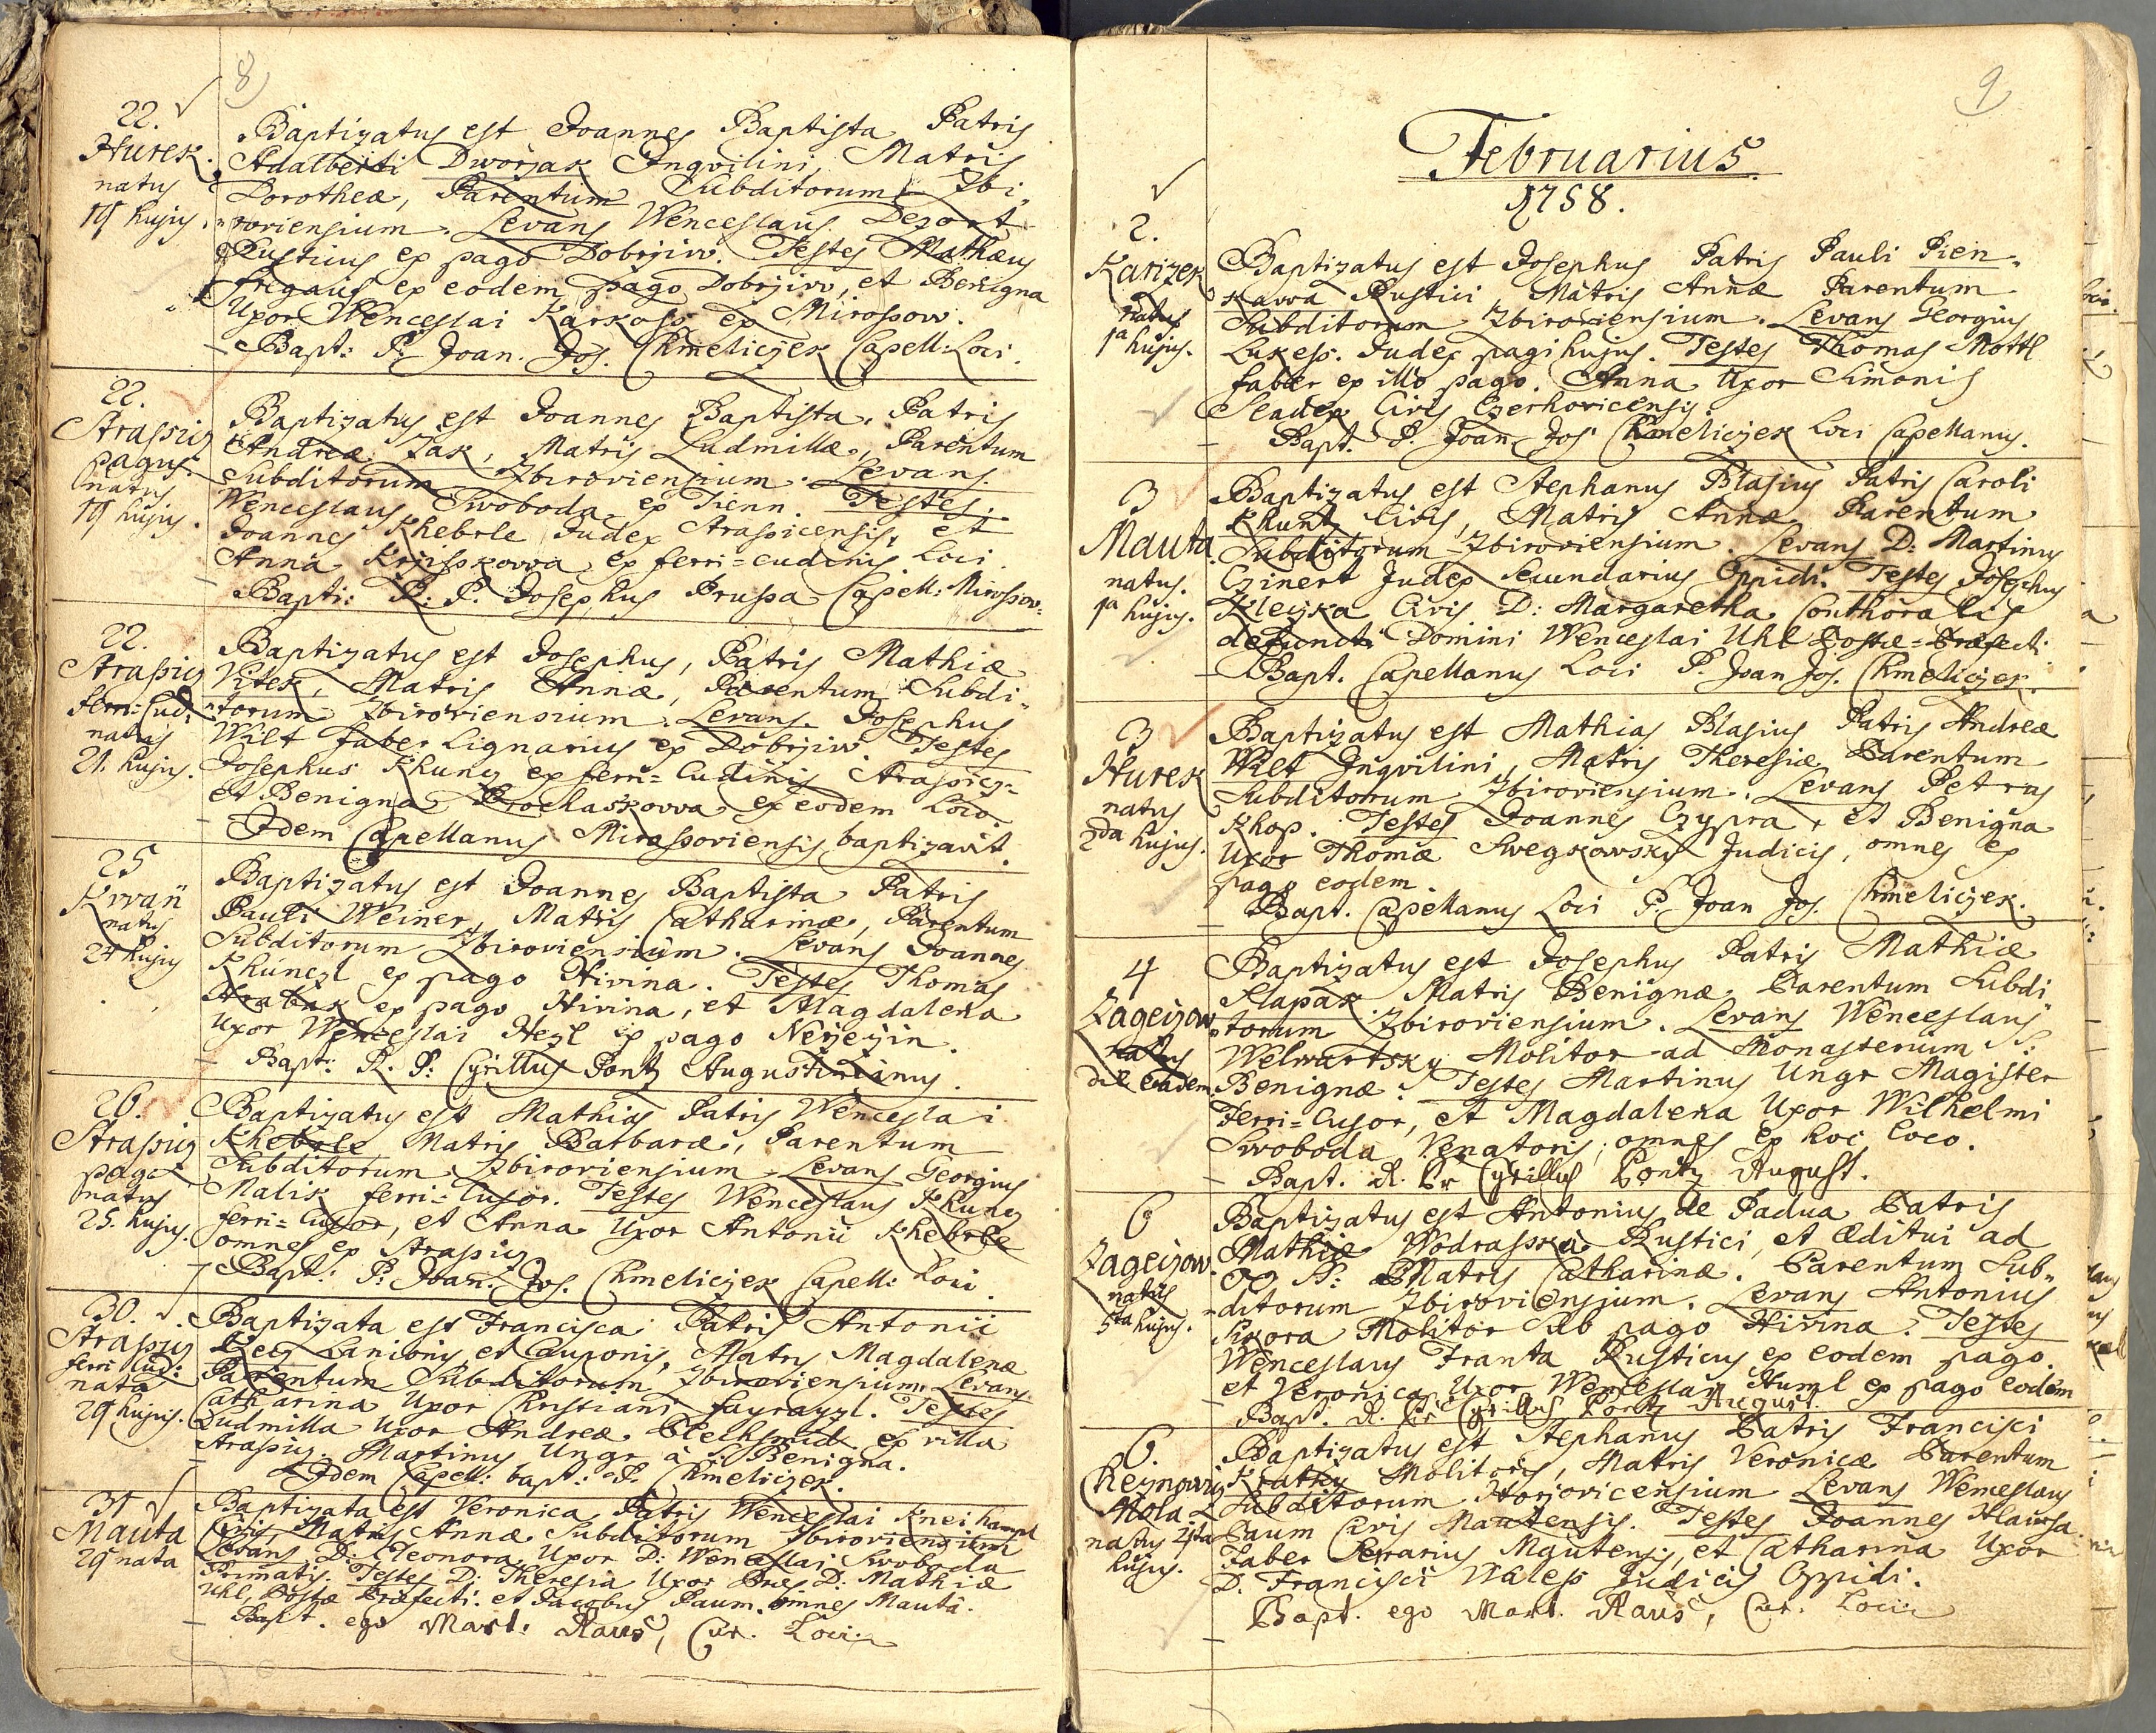 8
22.
Hurek.
natus
19 hujus.
Baptizatus est Joannes Baptista Patris
Adalberti Dworzak Inqvilini, Matris
Dorotheæ, Parentum Subditorum Zbi-
roviensium. Levans Wenceslaus Dezort
Rusticus ex pago Dobrziw. Testes Mathæus
ex eodem pago Dobrziw, et Benigna
Uxor Wenceslai Karkoss ex Mirossow.
Bapt: P. Joan. Jos. Chmeliczek Capell: Loci.
22.
Strassitz
pagus.
natus
19 hujus.
Baptizatus est Joannes Baptista, Patris
Andreæ Zak, Matris Ludmillæ, Parentum
Subditorum Zbiroviensium. Levans.
Wenceslaus Swoboda ex Tienn. Testes.
Joannes Kheberle Judex Strassicensis, et
Anna Krzisskowa ex ferri=cudinis Loci.
Bapti: R: P. Josephus Prussa Capell: Mirossov:
22.
Strassitz
ferri=Cud:
natus
21. hujus.
Baptizatus est Josephus, Patris Mathiæ
Vitek, Matris Annæ, Parentum Subdi-
torum Zbiroviensium. Levans. Josephus
Wilt faber Lignarius ex Dobrziw Testes
Josephus Khunz ex ferri=Cudinis Strassicz=
et Benigna Prochaskowa ex eodem Loco.
Idem Capellanus Mirossoviensis baptizavit.
25
Kwan
natus
24 hujus
Baptizatus est Joannes Baptista Patris
Pauli Weiner, Matris Catharinæ, Parentum
Subditorum Zbiroviensium. Levans Joannes
Khünczl ex pago Hivina. Testes Thomas
Hrabak ex pago Hivina, et Magdalena
Uxor Wenceslai Hezl ex pago
Bapt: R. P: Cyrillus Pontz Augustinianus.
26.
Strassitz
pago
natus
25. hujus.
Baptizatus est Mathias Patris Wenceslai
Kheberle Matris Barbaræ, Parentum
Subditorum Zbiroviensium. Levans Georgius
Malik ferri=Cusor. Testes Wenceslaus Khunz
ferri=Cusor, et Anna Uxor Antonii Kheberle
omnes ex Strassitz
Bapt: P: Joan. Jos. Chmeliczek Capell: Loci.
30.
Strassitz
ferri Cud:
nata
29 hujus.
Baptizata est Francisca Patris Antonii
Lanionis et Cauponis, Matris Magdalenæ
Parentum Subditorum Zbiroviensium Levans
Catharina Uxor Christiani Testes
Ludmilla Uxor Andreæ Blechsmid ex villa
Strassitz. Martinus Ungr à S. Benigna.
Idem Capell: bapt: P. Chmeliczek.
31
Mauta
29 nata
Baptizata est Veronica, Patris Wenceslai
Civis, Matris Annæ Subditorum Zbiroviensium
Levans D: Eleonora Uxor D: Wenceslai Swoboda
Primatis. Testes D: Theresia Uxor D: Mathiæ
Uhl, Postæ Præfecti. et Jacobus Paum. omnes Mautâ.
Bapt. ego Mart: Raus, Cur. Loci
9
Februarius.
1758.
2.
Karizek
natus
1a hujus.
Baptizatus est Josephus Patris Pauli Pien-
kawa Rustici, Matris Annæ Parentum
Subditorum Zbiroviensium. Levans Georgius
Lukess. Judex pagi hujus. Testes Thomas Mottl
faber ex illo pago. Anna Uxor Simonis
Sladek Civis Czerhovicensis.
Bapt. P. Joan Jos Chmeliczek Loci Capellanus.
3
Mauta.
natus.
1a hujus.
Baptizatus est Stephanus Blasius Patris Caroli
Khuntz Civis, Matris Annæ Parentum
Subditorum Zbiroviensium. Levans D: Martinus
Czinert Judex Secundarius Oppidi. Testes Josephus
Kleczka Civis D: Margaretha Conthoralis
defuncti Domini Wenceslai Uhl Postæ=Præfecti
Bapt. Capellanus Loci P. Joan Jos. Chmeliczek.
3
Hurek
natus
2da hujus.
Baptizatus est Mathias Blasius Patris Andreæ
Wilt Inqvilini, Matris Theresiæ Parentum
Subditorum Zbiroviensium. Levans Petrus
Khop. Testes Joannes Czypra, et Benigna
Uxor Thomæ Swegkowsky Judicis, omnes ex
pago eodem.
Bapt. Capellanus Loci P. Joan Jos. Chmeliczek.
4
Zageczow
natus
die Eadem.
Baptizatus est Josephus Patris Mathiæ
Slapak Matris Benignæ Parentum Subdi-
torum Zbiroviensium. Levans Wenceslaus
Welwartsky Molitor ad Monasterium S:
Benignæ. Testes Martinus Ungr Magister
Ferri=Cusor, et Magdalena Uxor Wilhelmi
Swoboda Venatoris, omnes ex hoc loco.
Bapt. R. Pr Cyrillus Pontz August.
6
Zageczow
natus
5ta hujus.
Baptizatus est Antonius de Padua Patris
Mathiæ Wodrasska Rustici, et Æditui ad
OO SS: Matris Catharinæ. Parentum Sub-
ditorum Zbiroviensium. Levans Antonius
Sikora Molitor sub pago Hivina. Testes
Wenceslaus Franta Rusticus ex eodem pago.
et Veronica Uxor Wenceslai Huml ex pago eodem
Bapt. R. Pr Cyrillus Pontz August.
6.
Cheznowitz
Mola
natus 4ta
hujus.
Baptizatus est Stephanus Patris Francisci
Kratky Molitoris, Matris Veronicæ Parentum
Subditorum Horzovicensium Levans Wenceslaus
Paum Civis Mautensis. Testes Joannes Hlawsa
Faber Ferrarius Mautensis, et Catharina Uxor
D. Francisci Waless Judicis Oppidi.
Bapt. ego Mart. Raus, Cur. Loci